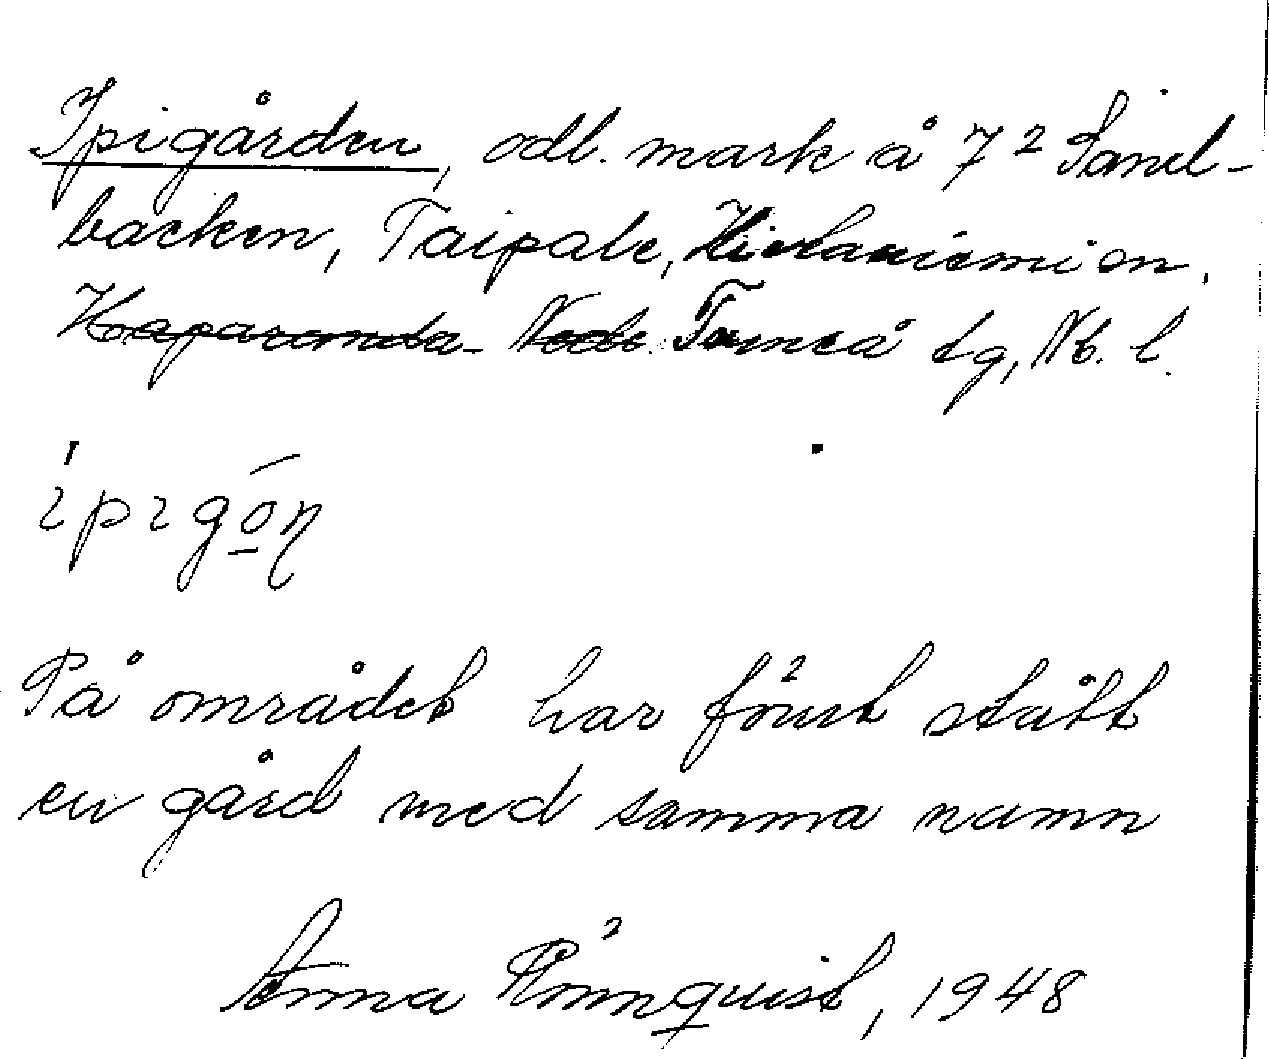 Ipigården, odl. mark å 7² Sand-
backen, Taipale, Hietaniemi sn,
Haparanda Nedt. Torneå tg, Nb. l.
ipigón̥
På området har först stått
en gård med samma namn
Anna Rönnquist, 1948